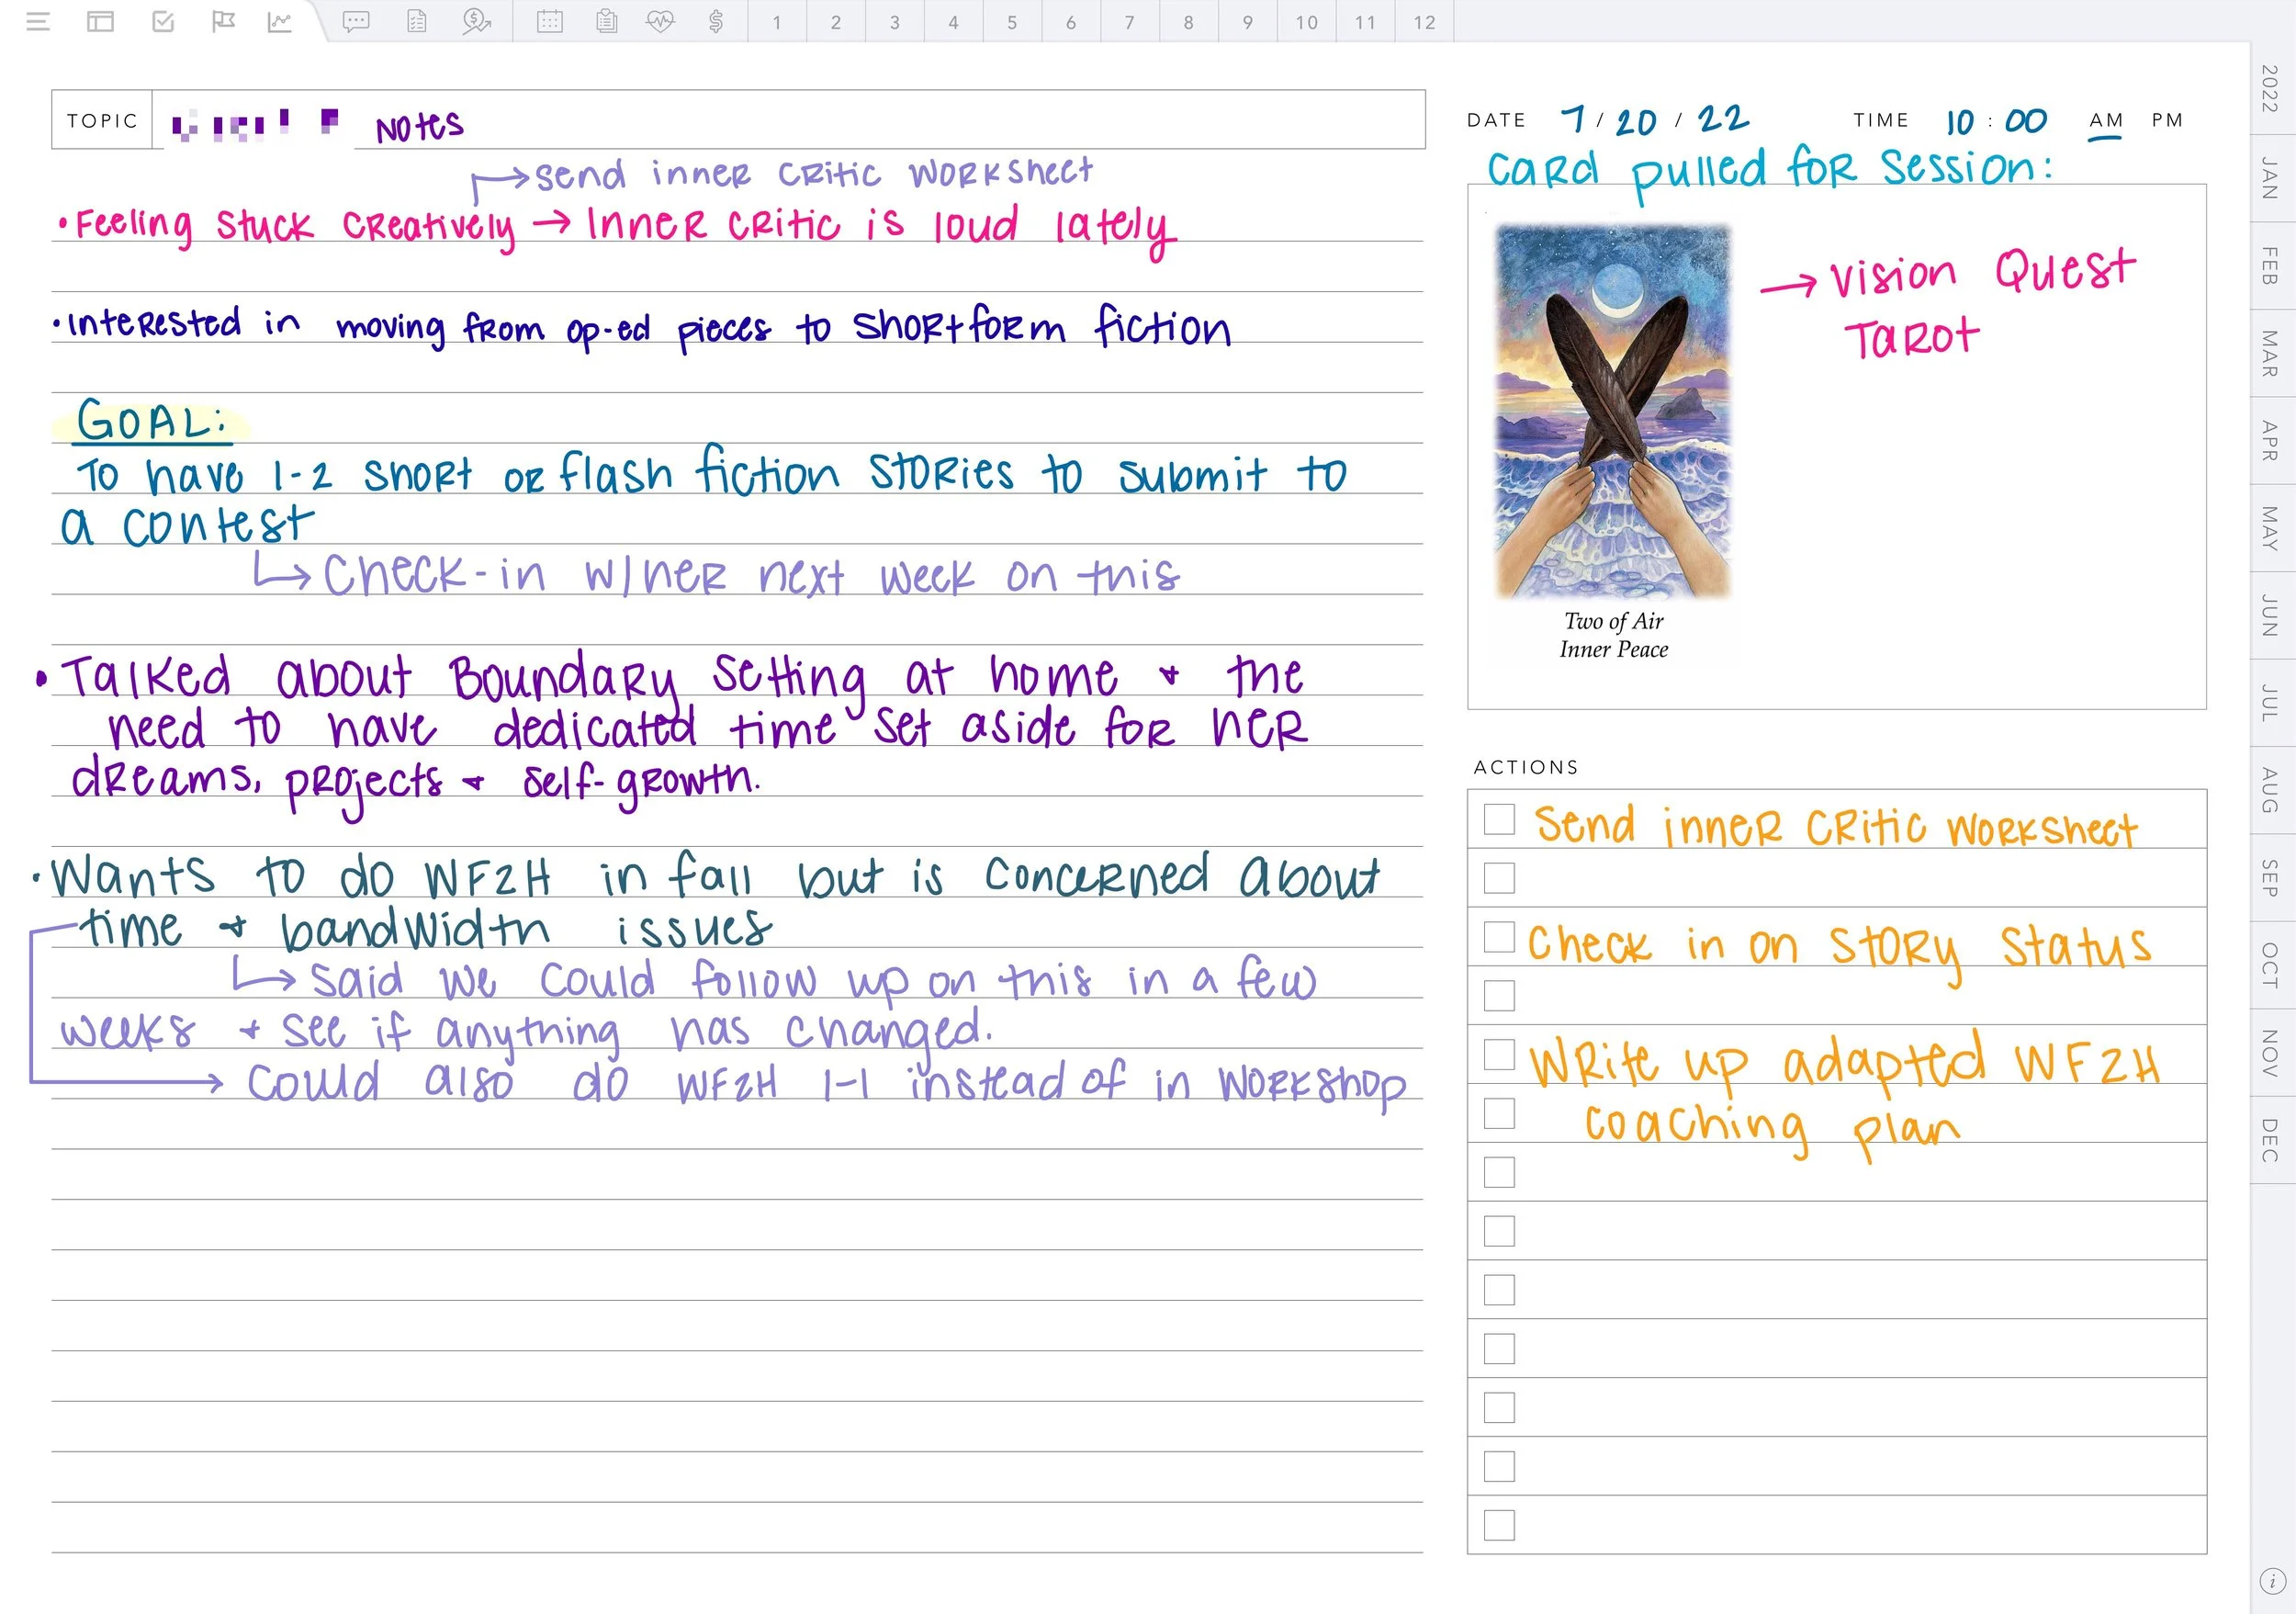 1 2 3 4 5 6 7 8 9 10 11 12
TOPIC Notes
→ Send inner critic worksheet
• Feeling stuck creatively → Inner critic is loud lately
• Interested in moving from op-ed pieces to short form fiction
GOAL:
To have 1-2 short or flash fiction stories to submit to
a contest
↳ Check-in w/ her next week on this
• Talked about Boundary setting at home + the
need to have dedicated time set aside for her
dreams, projects + self-growth.
• Wants to do WF2H in fall but is concerned about
time + bandwidth issues
↳ Said we could follow up on this in a few
weeks + see if anything has changed.
→ Could also do WF2H 1-1 instead of in workshop
DATE 7 / 20 / 22 TIME 10 : 00 AM PM
Card pulled for Session:
→ Vision Quest
Tarot
Two of Air
Inner Peace
ACTIONS
Send inner critic worksheet
Check in on story status
Write up adapted WF2H
coaching plan
2022
JAN
FEB
MAR
APR
MAY
JUN
JUL
AUG
SEP
OCT
NOV
DEC
i